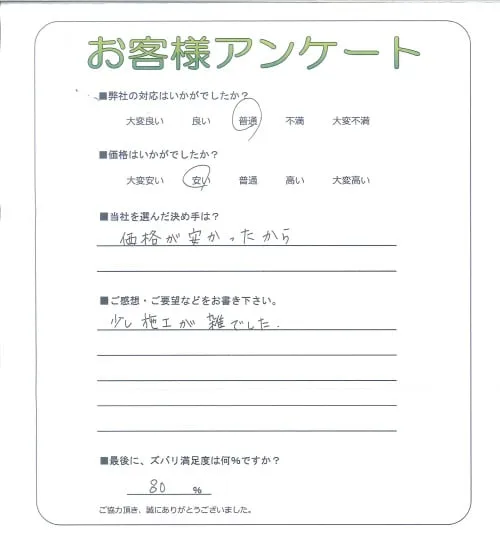 お客様アンケート
■弊社の対応はいかがでしたか？
大変良い 良い 普通 不満 大変不満
■価格はいかがでしたか？
大変安い 安い 普通 高い 大変高い
■当社を選んだ決め手は？
価格が安かったから
■ご感想・ご要望などをお書き下さい。
少し施工が雑でした.
■最後に、ズバリ満足度は何％ですか？
80 ％
ご協力頂き、誠にありがとうございました。